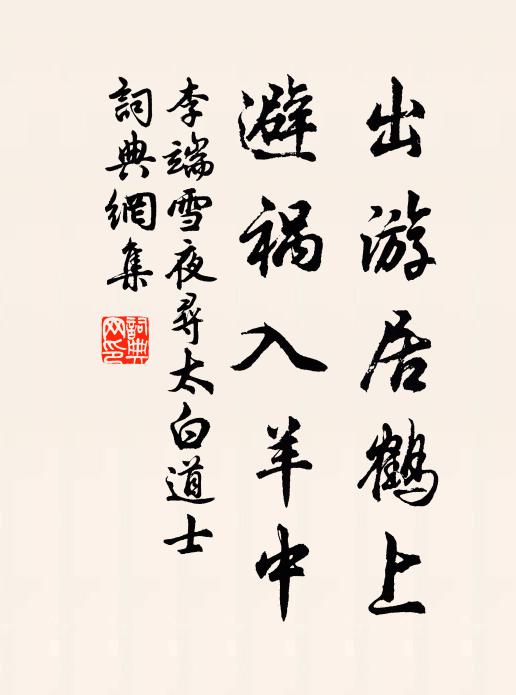 出游居鹤上
避祸入羊中
李端雪夜尋太白道士
詞典網集
詞典网印